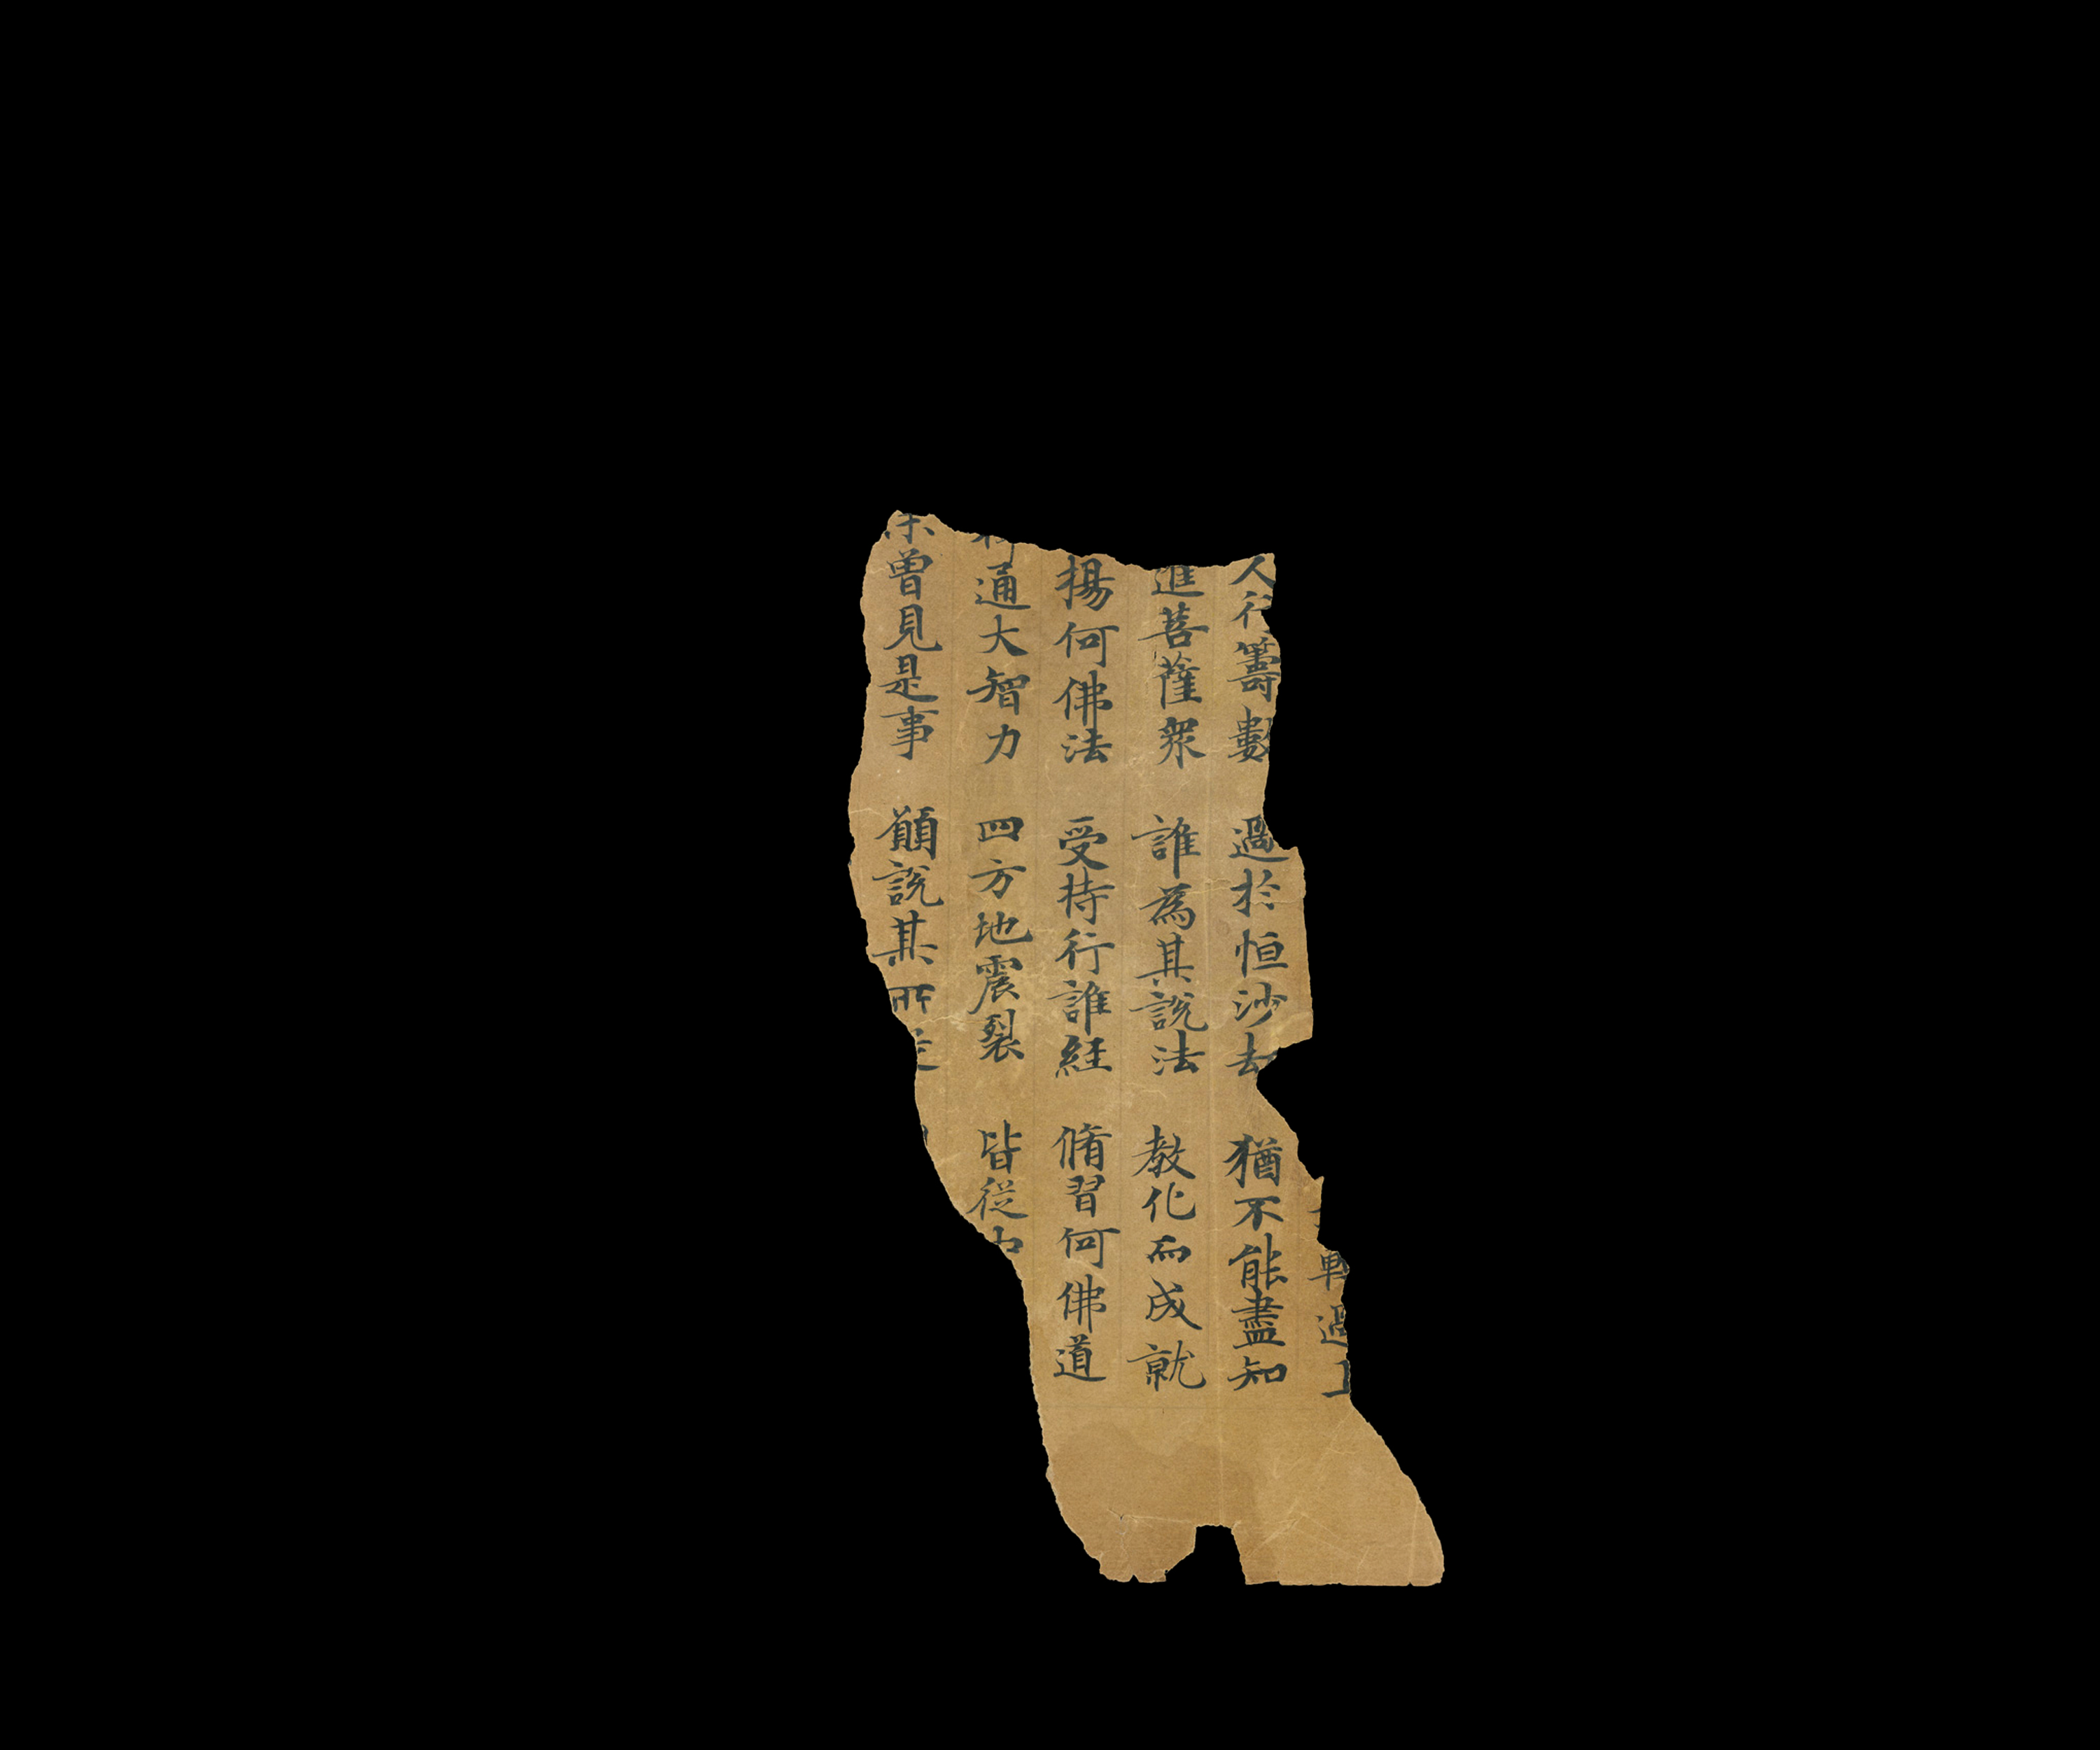 轉過上
人行籌數 過於恒沙劫 猶不能盡知
進菩薩衆 誰為其說法 教化而成就
揚何佛法 受持行誰經 脩習何佛道
通大智力 四方地震裂 皆從
未曾見是事 願說其所從